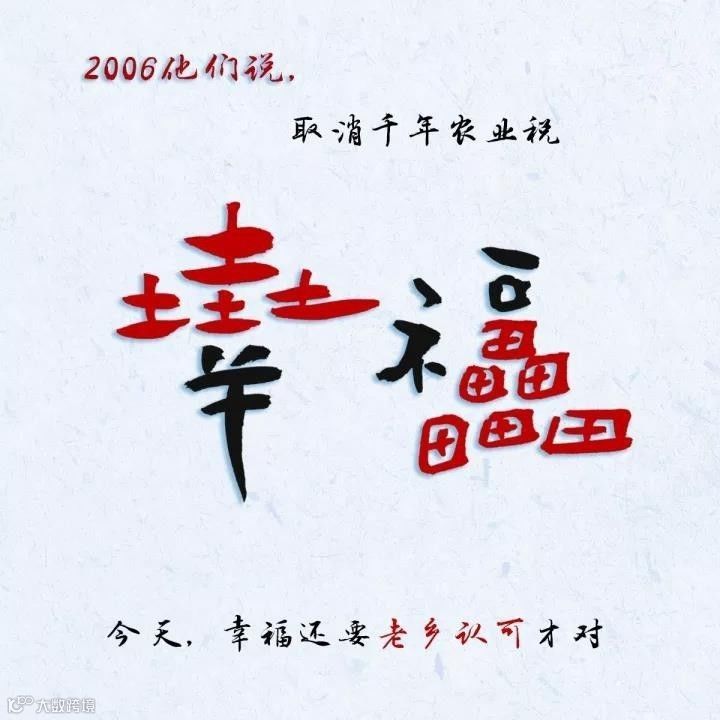 2006他们说,
取消千年农业税
幸福
今天, 幸福还要老乡认可才对
大数跨境